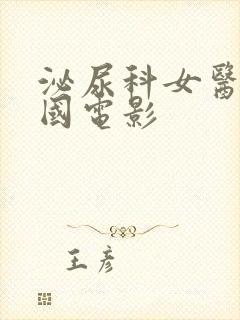 泌尿科女醫
國電影
王彥